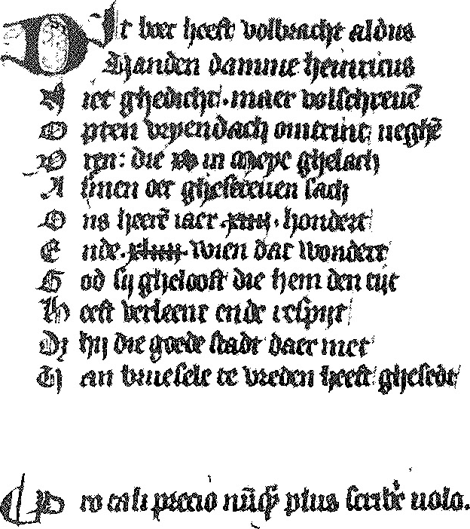 Dit boec heeft volbracht aldus
Van den damme heinricus
Hier ghedicht . maer volscreuē
Opten vrydach omtrint neghē
Vren : die in Meye ghelach
Alsmen oec ghescreuen sach
Ons heerē iaer .xiiij. hondert
Ende .xliiij. wien dat wondert
God sy ghelooft die hem den tijt
Heeft verleent ende respijt
Di hij die goede stadt daer met
Van bruesele te vreden heeft ghesedt
Pro tali precio nūq̄ plus scribē uolo.